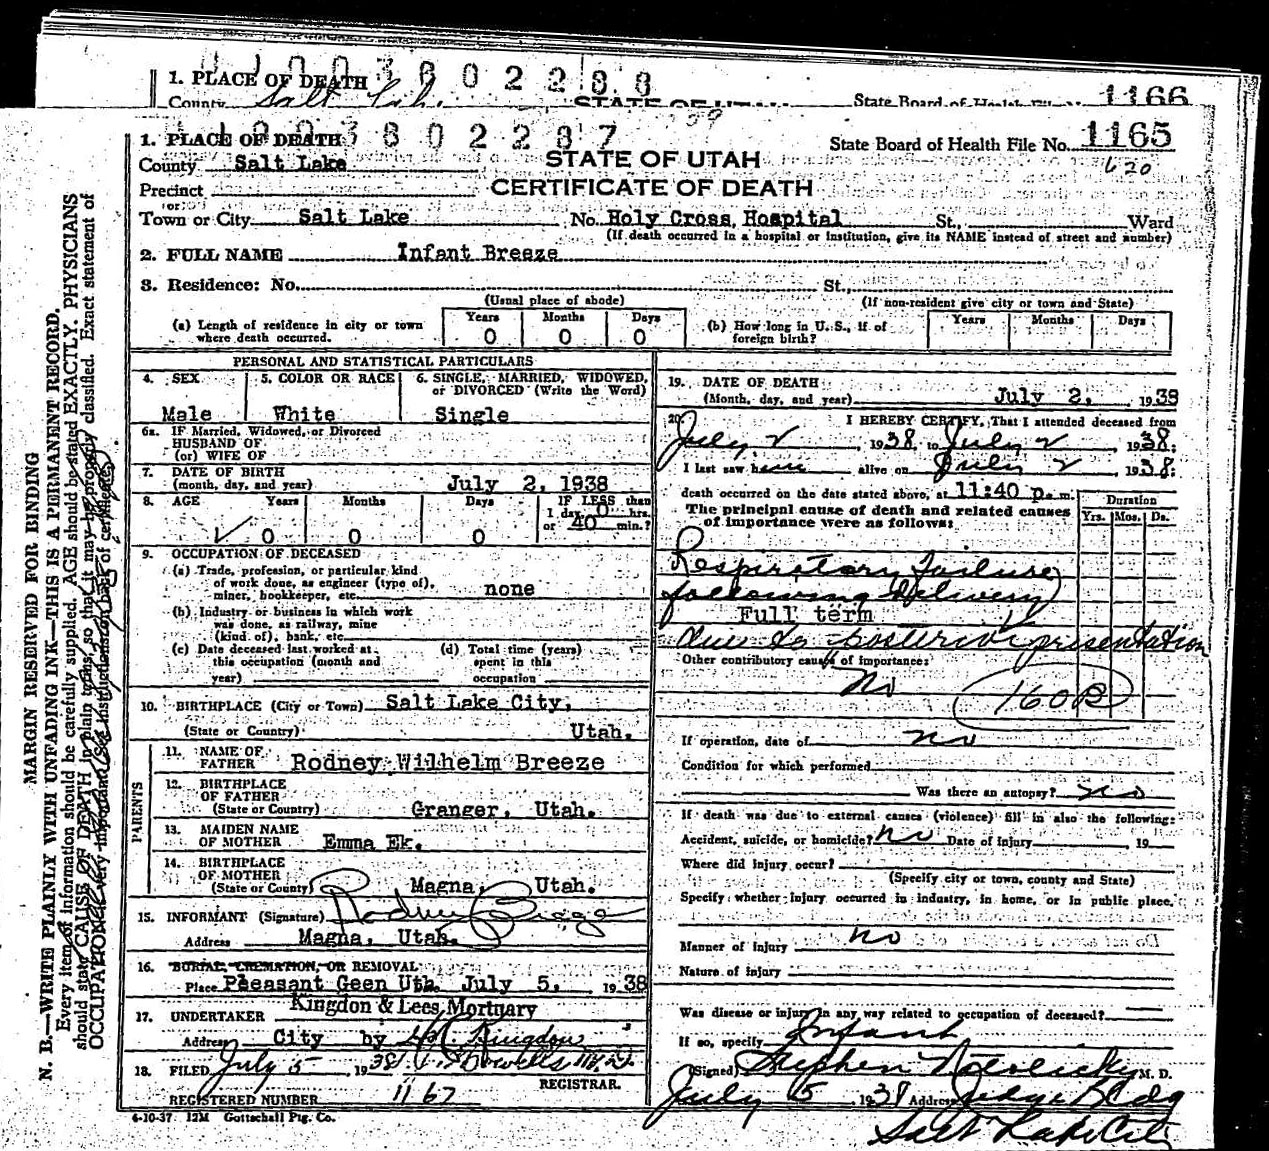 1. PLACE OF DEATH
County Salt Lake
STATE OF UTAH
State Board of Health File No. 1166
1. PLACE OF DEATH
State Board of Health File No. 1165
620
County Salt Lake
STATE OF UTAH
Precinct
CERTIFICATE OF DEATH
or
Town or City Salt Lake No. Holy Cross, Hospital St., Ward
(If death occurred in a hospital or institution, give its NAME instead of street and number)
2. FULL NAME Infant Breeze
3. Residence: No. St.,
(Usual place of abode) (If non-resident give city or town and State)
(a) Length of residence in city or town where death occurred.
Years Months Days
0 0 0
(b) How long in U. S., if of foreign birth?
Years Months Days
PERSONAL AND STATISTICAL PARTICULARS
4. SEX
Male
5. COLOR OR RACE
White
6. SINGLE, MARRIED, WIDOWED,
or DIVORCED (Write the Word)
Single
6a. IF Married, Widowed, or Divorced
HUSBAND OF
(or) WIFE OF
7. DATE OF BIRTH
(month, day, and year) July 2, 1938
8. AGE Years Months Days IF LESS than
1 day, 0 hrs.
0 0 0 or 40 min.?
9. OCCUPATION OF DECEASED
(a) Trade, profession, or particular kind
of work done, as engineer (type of),
miner, bookkeeper, etc. none
(b) Industry or business in which work
was done, as railway, mine
(kind of), bank, etc.
(c) Date deceased last worked at
this occupation (month and
year)
(d) Total time (years)
spent in this
occupation
10. BIRTHPLACE (City or Town) Salt Lake City,
(State or Country) Utah.
PARENTS
11. NAME OF
FATHER Rodney Wilhelm Breeze
12. BIRTHPLACE
OF FATHER
(State or Country) Granger, Utah.
13. MAIDEN NAME
OF MOTHER Emma Ek.
14. BIRTHPLACE
OF MOTHER
(State or County) Magna, Utah.
15. INFORMANT (Signature) Rodney Breeze
Address Magna, Utah.
16. BURIAL, CREMATION, OR REMOVAL
Place Pleasant Geen Uth. July 5, 1938
17. UNDERTAKER Kingdon & Lees Mortuary
Address City by Kingdon
18. FILED July 5, 1938
REGISTRAR.
REGISTERED NUMBER 1167
4-10-37 12M Gottschall Ptg. Co.
19. DATE OF DEATH
(Month, day, and year) July 2, 1938
20. I HEREBY CERTIFY, That I attended deceased from
July 2, 1938, to July 2, 1938;
I last saw him alive on July 2, 1938;
death occurred on the date stated above, at 11:40 p. m.
The principal cause of death and related causes
of importance were as follows:
Duration
Yrs. Mos. Ds.
Respiratory Failure
following delivery
Full term
due to posterior presentation
Other contributory causes of importance:
No
160B
If operation, date of no
Condition for which performed
Was there an autopsy? no
If death was due to external causes (violence) fill in also the following:
Accident, suicide, or homicide? no Date of injury , 19
Where did injury occur?
(Specify city or town, county and State)
Specify whether injury occurred in industry, in home, or in public place.
Manner of injury no
Nature of injury
Was disease or injury in any way related to occupation of deceased?
If so, specify Infant
(Signed) Stephen M. D.
July 5 1938 Address Judge Bldg
Salt Lake City
MARGIN RESERVED FOR BINDING
N. B.—WRITE PLAINLY WITH UNFADING INK—THIS IS A PERMANENT RECORD.
Every item of information should be carefully supplied. AGE should be stated EXACTLY. PHYSICIANS
should state CAUSE OF DEATH in plain terms, so that it may be properly classified. Exact statement of
OCCUPATION is very important. (See instructions on back of certificate.)